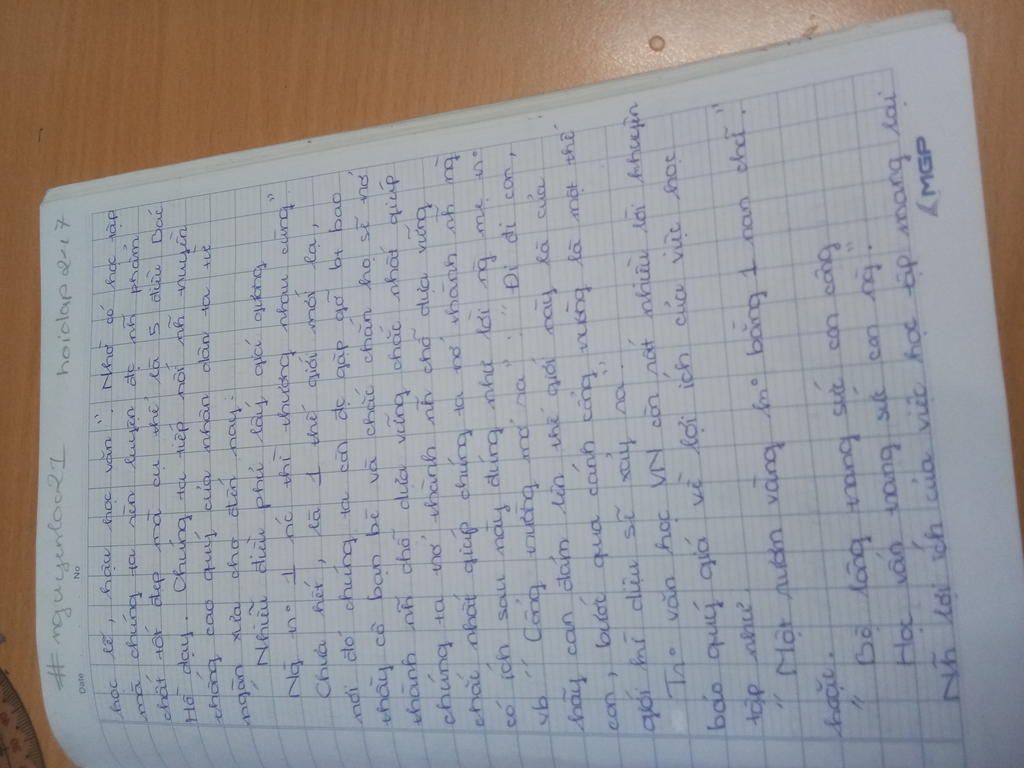 # nguyenloo21 hoidap247
Date No
học lễ, hậu học văn". Nhờ có học tập
mà chúng ta rèn luyện đc nh~ phẩm
chất tốt đẹp mà cụ thể là 5 điều Bác
Hồ dạy. Chúng ta tiếp nối nh~ truyền
thống cao quý của nhân dân ta từ
ngàn xưa cho đến nay:
" Nhiễu điều phủ lấy giá gương
Ng trº 1 nc thì thương nhau cùng"
Chưa hết, là 1 thế giới mới lạ,
nơi đó chúng ta còn đc gặp gỡ bt bao
thầy cô bạn bè và chắc chắn họ sẽ trở
thành nh~ chỗ dựa vững chắc nhất giúp
chúng ta trở thành nh~ chỗ dựa vững
chãi nhất giúp chúng ta trở thành nh~ ng
có ích sau này đúng như lời ng mẹ trº
vb " Cổng trường mở ra": " Đi đi con,
hãy can đảm lên thế giới này là của
con, bước qua cánh cổng trường là một thế
giới kì diệu sẽ xảy ra.
Trº văn học VN còn rất nhiều lời khuyên
báo quý giá về lợi ích của việc học
tập như:
" Một rương vàng kº bằng 1 nan chữ."
hoặc:
" Bộ lông mang sức con công
Học vấn mang sức con ng".
Nh~ lợi ích của việc học tập mang lại
MGP